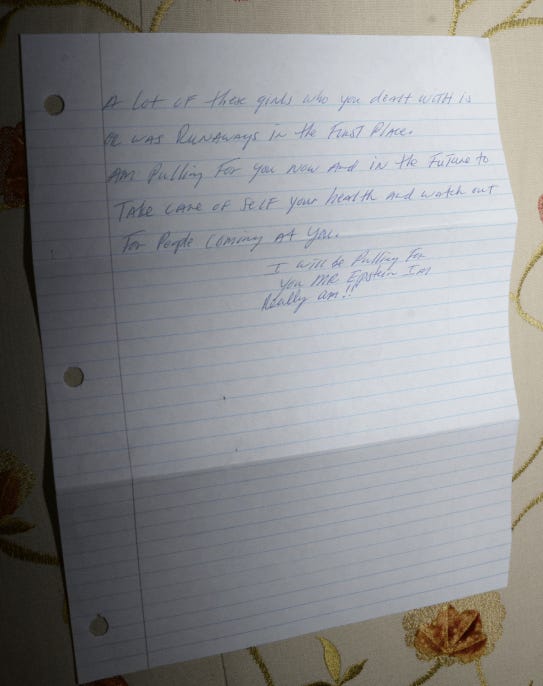 A Lot of these girls who you dealt with is
OR was Runaways in the First Place.
Am Pulling For you now And in the Future to
Take care of self your health and watch out
For People Coming At You.
I will be Pulling For
you MR Epstein Im
Really am!!